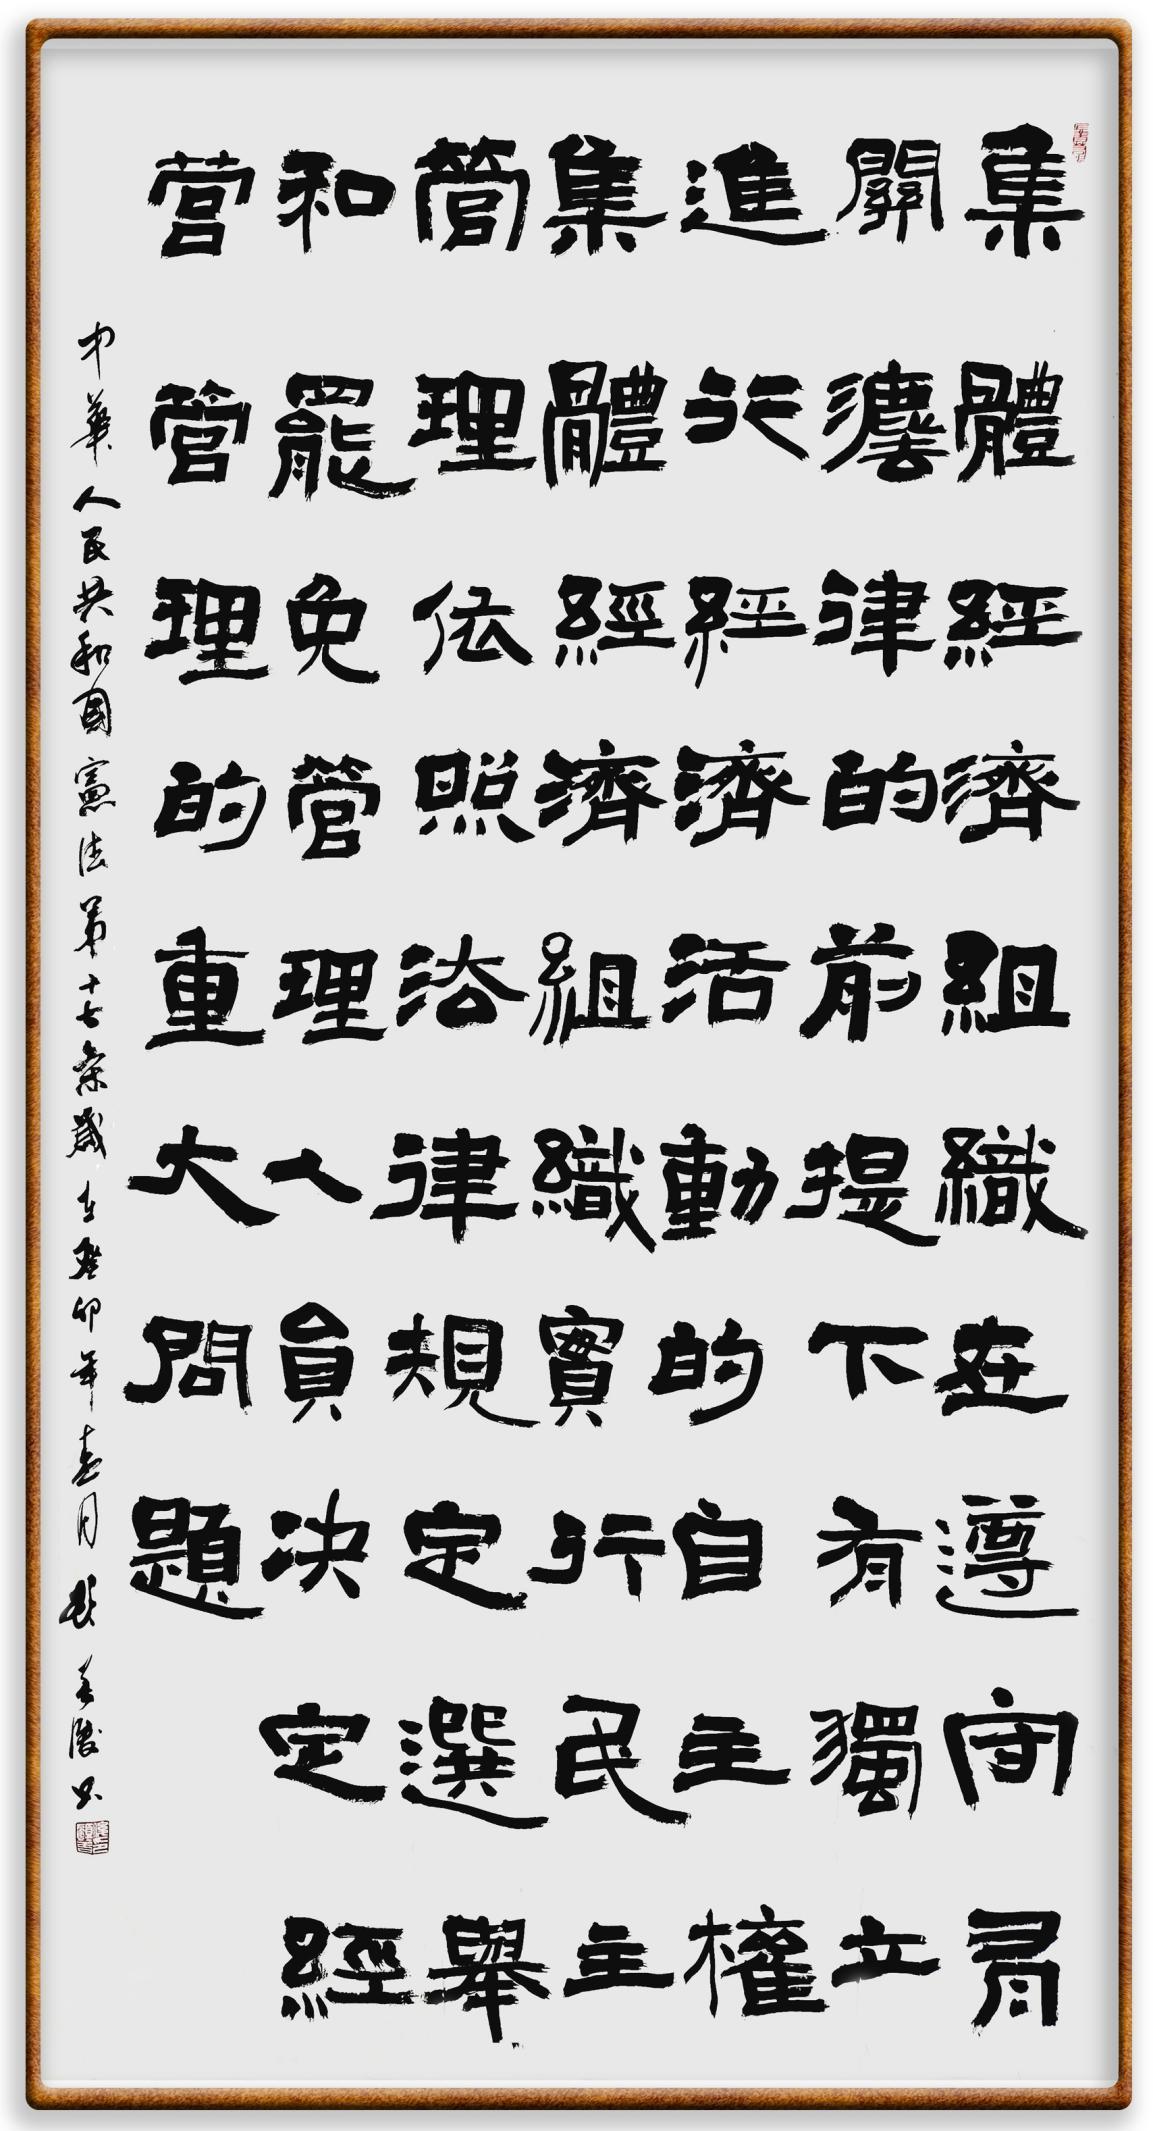 集體經濟組織在遵守有
關灋律的前提下有獨立
進行經濟活動的自主權
集體經濟組織實行民主
管理依照法律規定選舉
和罷免管理人員決定經
营管理的重大問題
中華人民共和國憲法第十七条歲在癸卯年春月